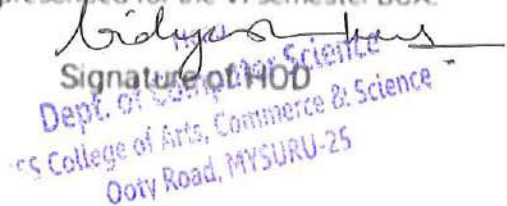 presented for the VI semester BCA.
Signature of HOD
Dept. of Computer Science
SS College of Arts, Commerce & Science
Ooty Road, MYSURU-25